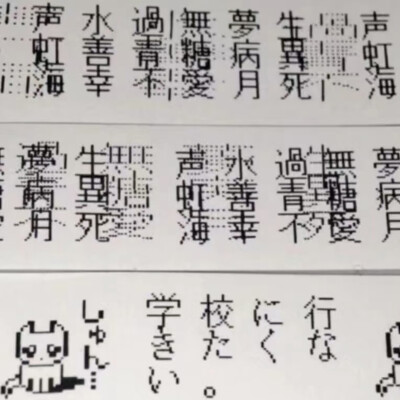 声虹海
生異死
夢病月
無糖愛
過青不
水善幸
声虹海
夢病月
無糖愛
過青不
水善幸
声虹海
生異死
夢病月
学校に行
きたくな
い。
しゅん…